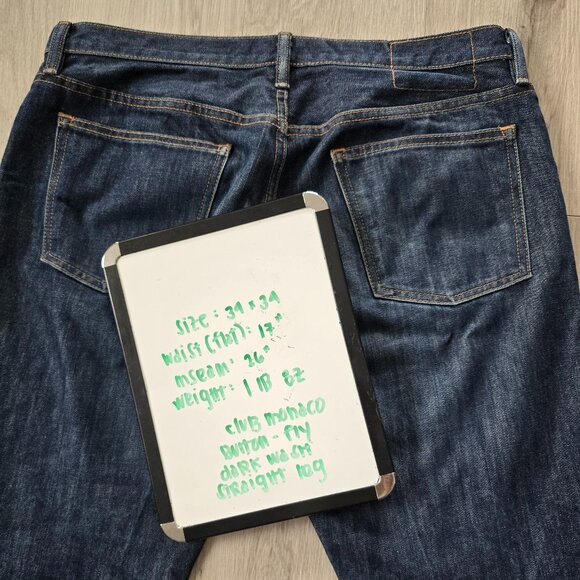 size: 34 x 34
waist (flat): 17"
inseam: 26"
weight: 1 lB 8z
club monaco
button-fly
dark wash
straight leg